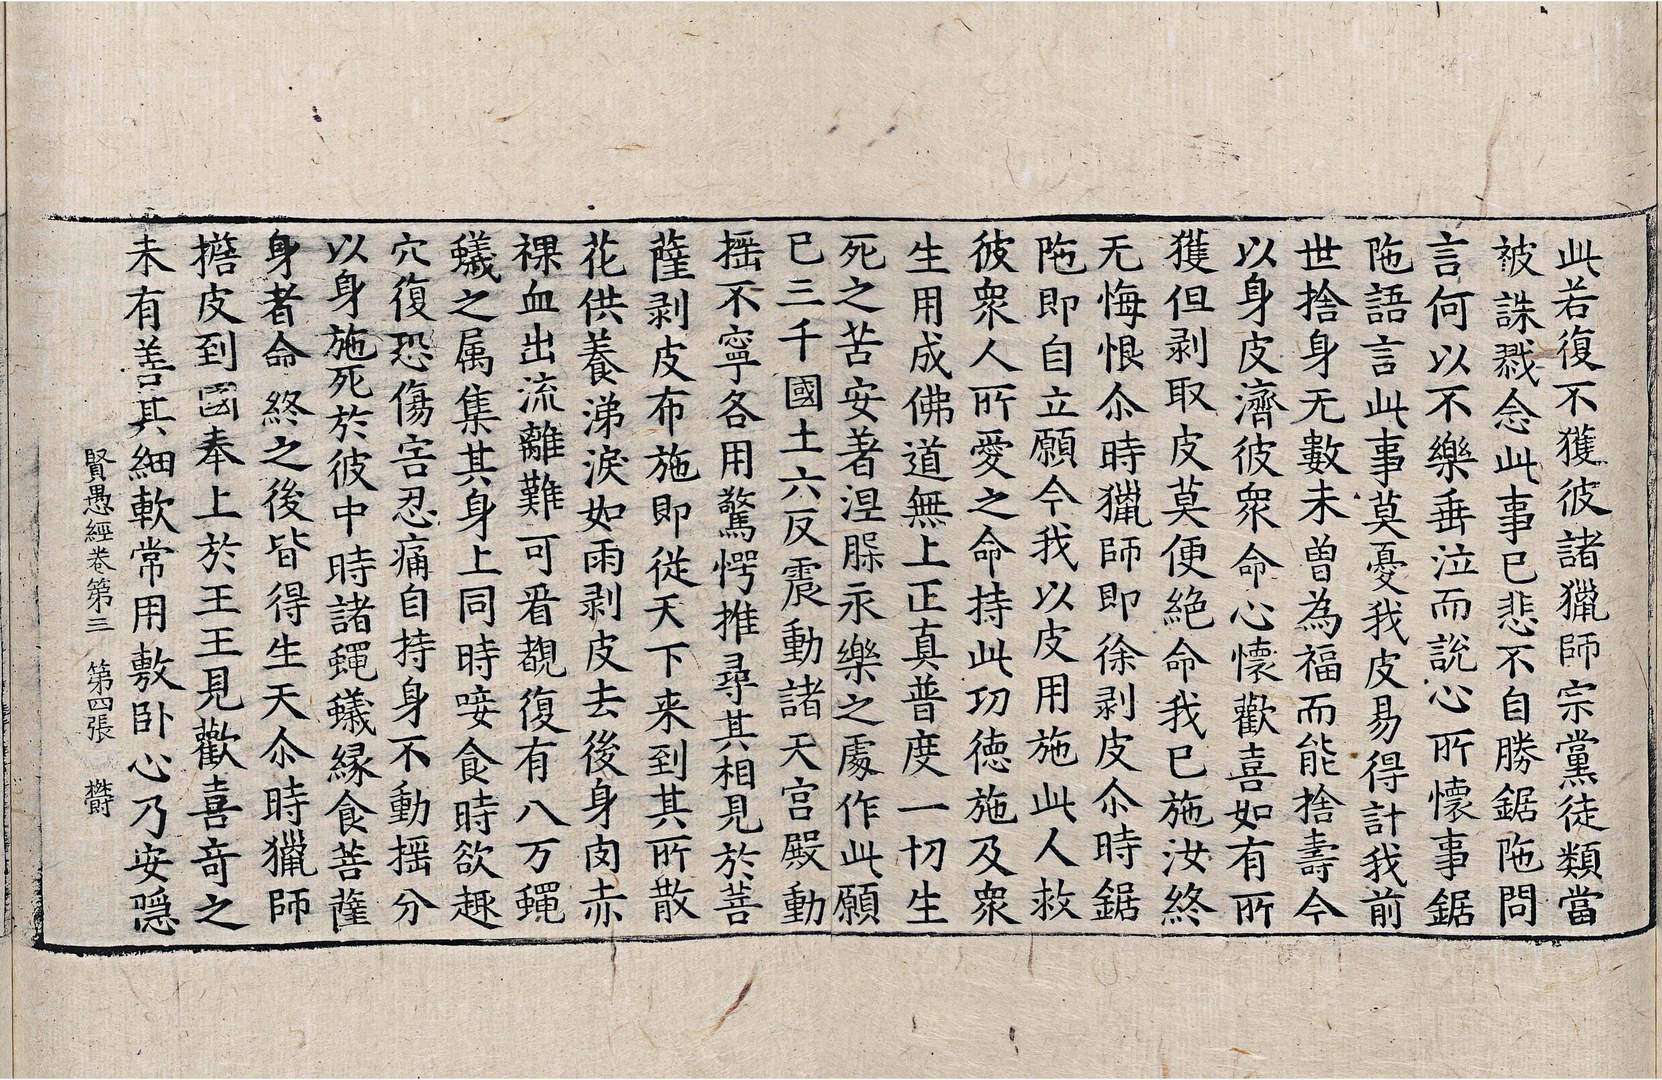 此若復不獲彼諸獵師宗黨徒類當
被誅戮念此事已悲不自勝鋸陁問
言何以不樂垂泣而說心所懷事鋸
陁語言此事莫憂我皮易得計我前
世捨身无數未曾為福而能捨壽今
以身皮濟彼眾命心懷歡喜如有所
獲但剥取皮莫便絕命我已施汝終
无悔恨尒時獵師即徐剥皮尒時鋸
陁即自立願今我以皮用施此人救
彼眾人所愛之命持此功德施及眾
生用成佛道無上正真普度一切生
死之苦安著涅槃永樂之處作此願
已三千國土六反震動諸天宮殿動
搖不寧各用驚愕推尋其相見於菩
薩剥皮布施即從天下来到其所散
花供養涕淚如雨剥皮去後身肉赤
裸血出流離難可看覩復有八万蠅
蟻之属集其身上同時唼食時欲趣
穴復恐傷害忍痛自持身不動搖分
以身施死於彼中時諸蠅蟻緣食菩薩
身者命終之後皆得生天尒時獵師
擔皮到國奉上於王王見歡喜奇之
未有善其細軟常用敷卧心乃安隱
賢愚經卷第三 第四張 欝